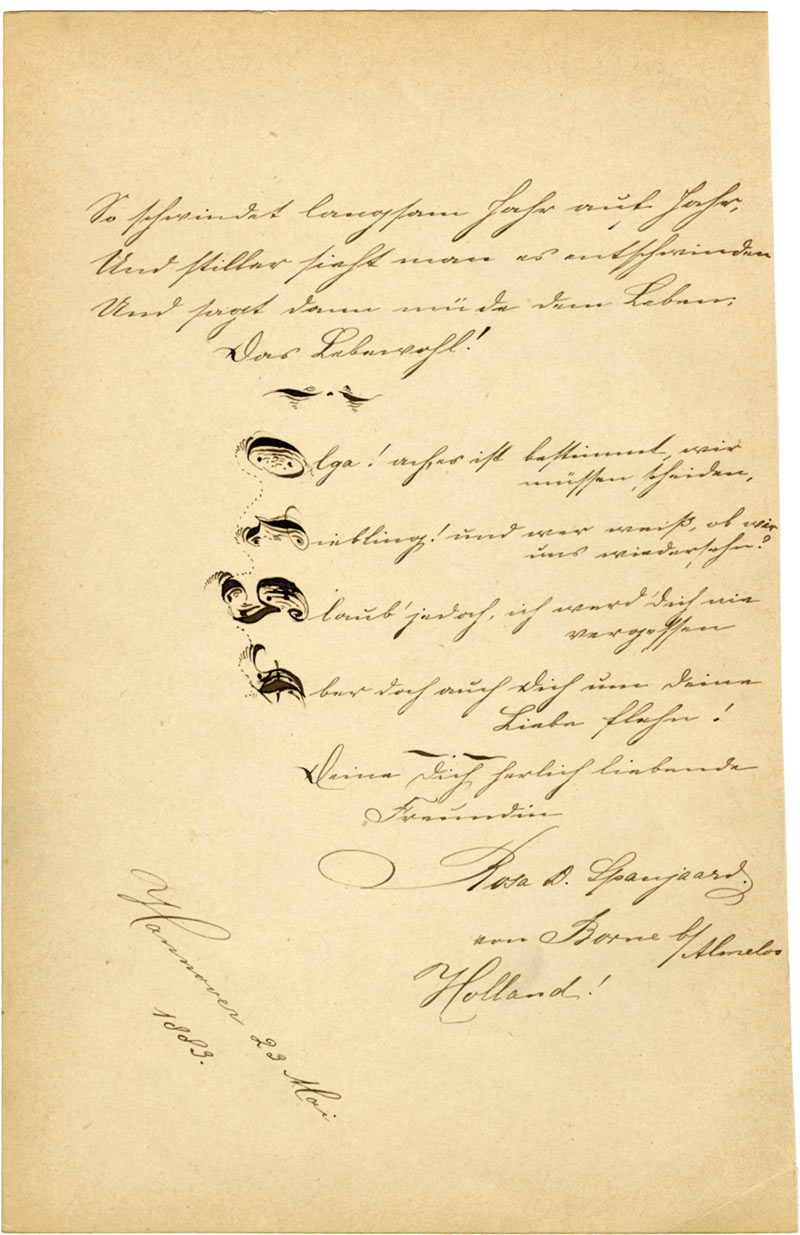 So schwindet langsam Jahr auf Jahr,
Und stiller sieht man es entschwinden
Und sagt dann müde dem Leben:
Das Lebewohl!
Olga! ach, es ist bestimmt, wir
müssen scheiden,
Liebling! und wer weiß, ob wir
uns wiedersehn?
Glaub' jedoch, ich werd' Dich nie
vergessen
Aber doch auch Dich um Deine
Liebe flehn!
Deine Dich herlich liebende
Freundin
Rosa D. Spanjaard.
von Borne b/Almeloo
Holland!
Hannover 23 Mai
1883.